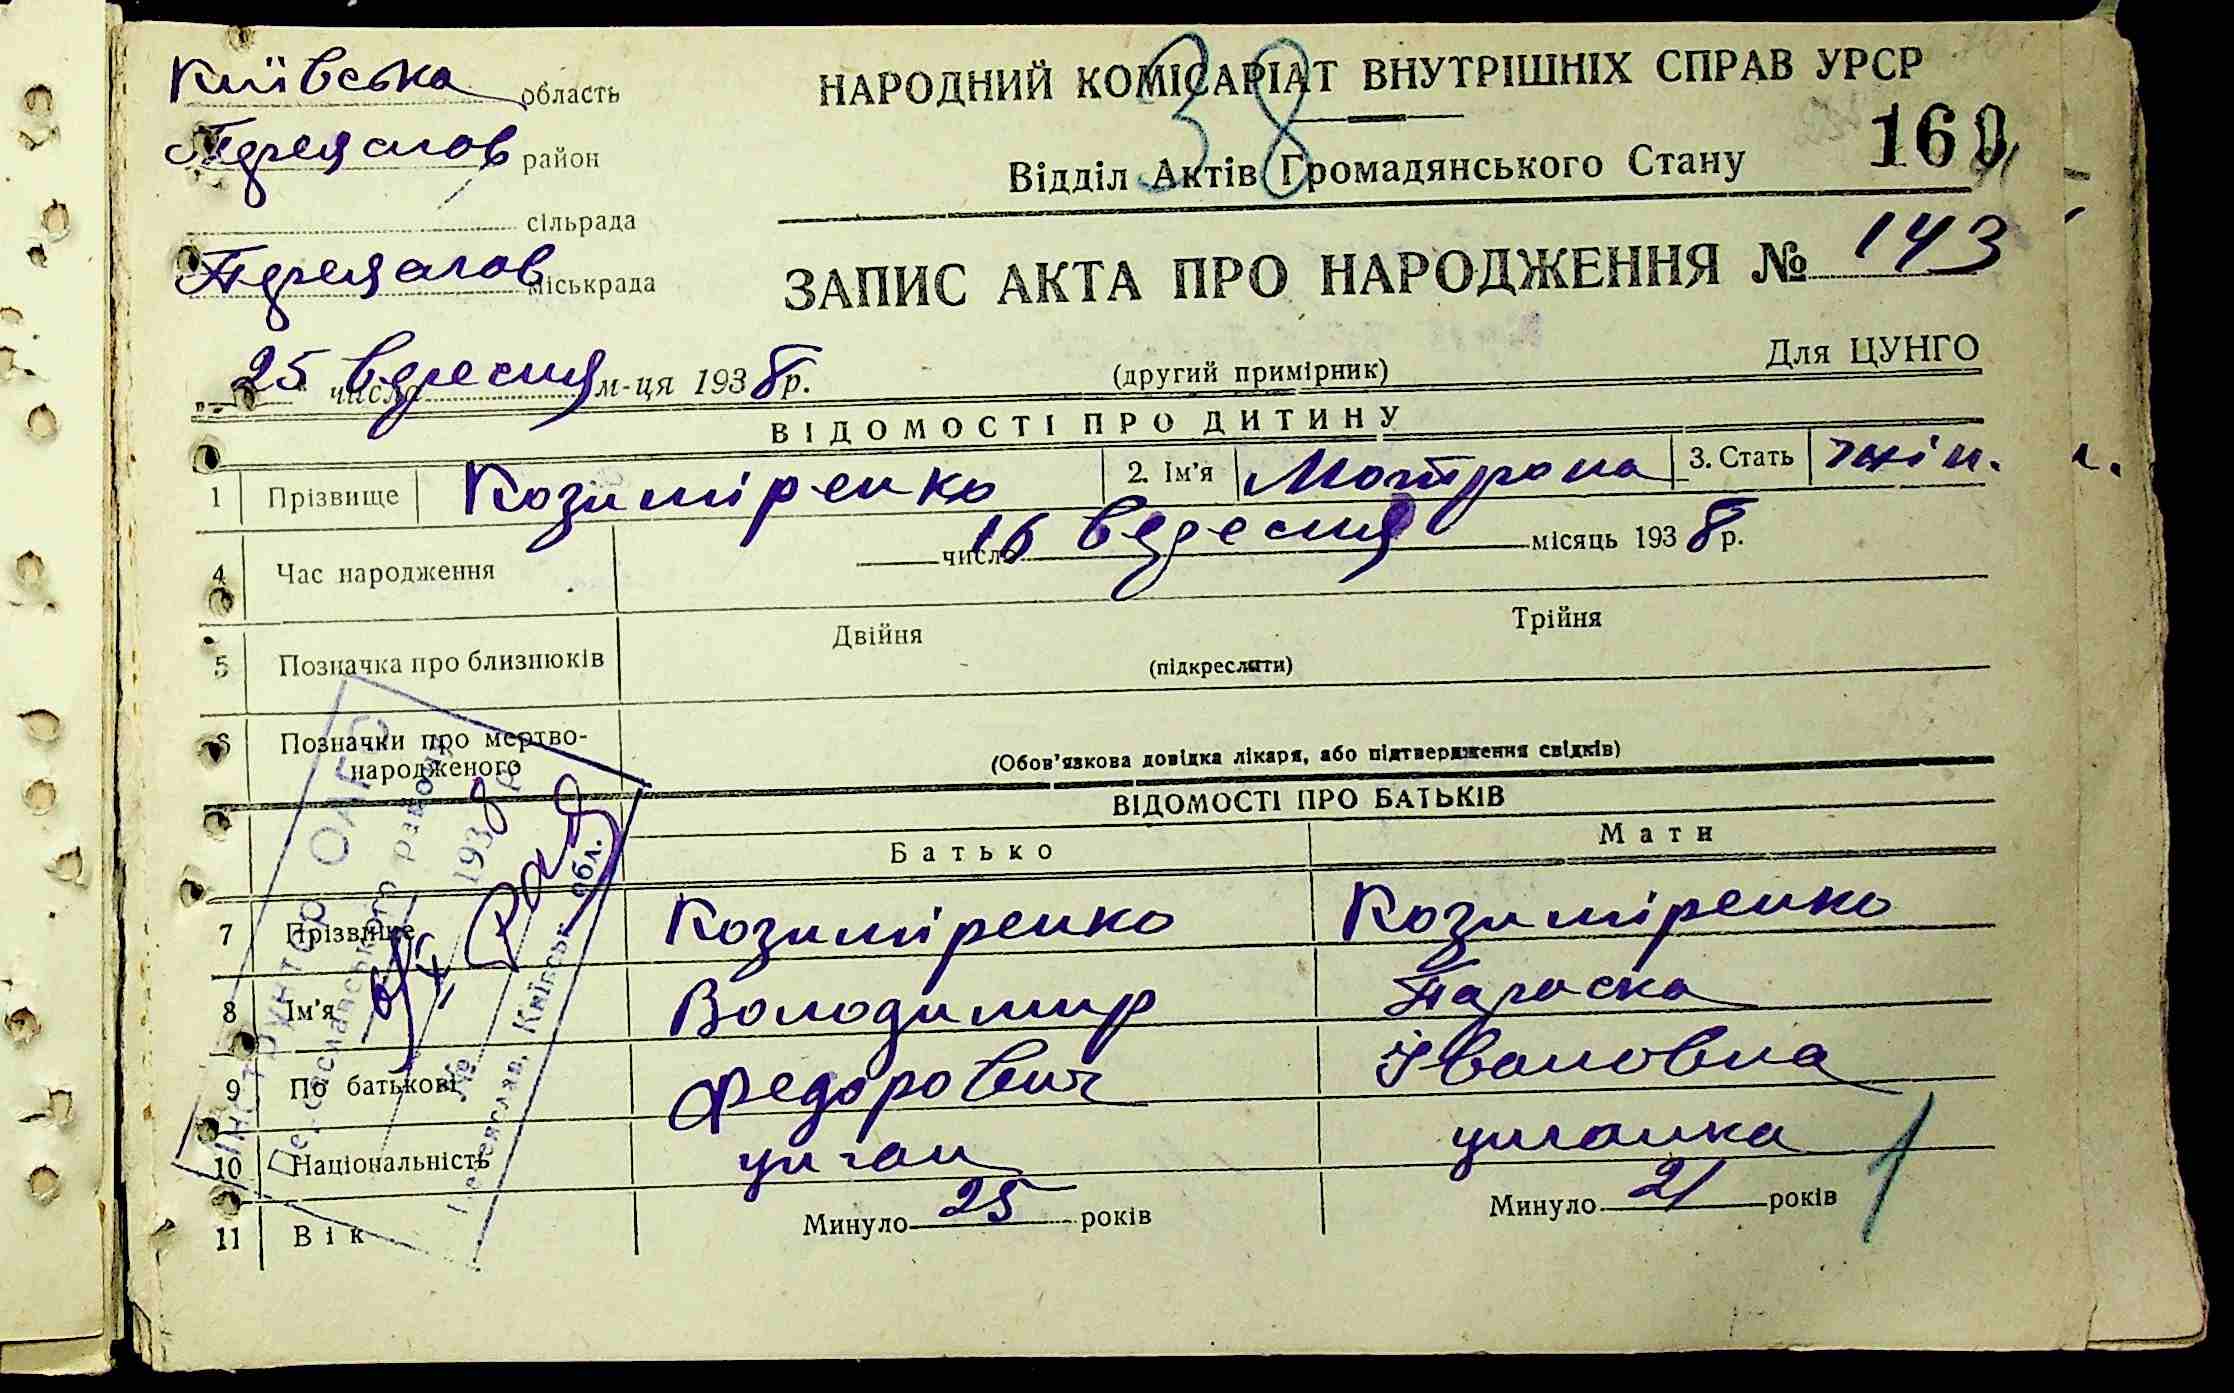 Київська область
НАРОДНИЙ КОМІСАРІАТ ВНУТРІШНІХ СПРАВ УРСР
38
район
Відділ Актів Громадянського Стану
160
сільрада
міськрада
ЗАПИС АКТА ПРО НАРОДЖЕННЯ № 143
25 числа вересня м-ця 1938 р.
(другий примірник)
Для ЦУНГО
ВІДОМОСТІ ПРО ДИТИНУ
1 Прізвище Козиміренко 2. Ім'я Мотрона 3. Стать жін.
4 Час народження 16 число вересня місяць 1938 р.
5 Позначка про близнюків Двійня Трійня
(підкреслити)
6 Позначки про мертвонародженого
(Обов'язкова довідка лікаря, або підтвердження свідків)
ВІДОМОСТІ ПРО БАТЬКІВ
Батько Мати
7 Прізвище Козиміренко Козиміренко
8 Ім'я Володимир Параска
9 По батькові Федорович Івановна
10 Національність циган циганка
11 Вік Минуло 25 років Минуло 21 років
1
№
1938 р.
Київськ. обл.